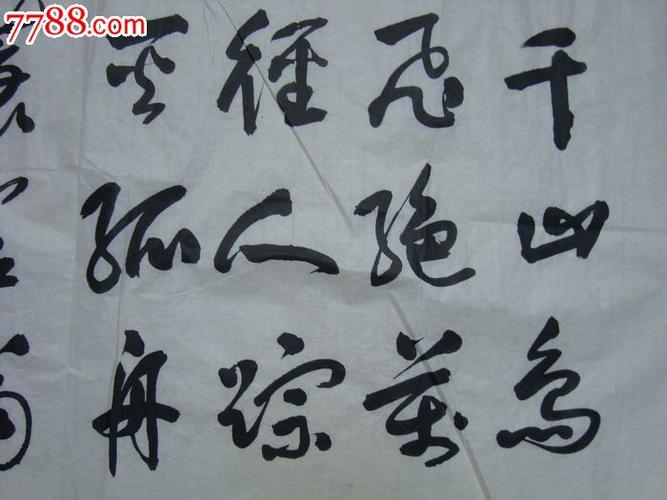 7788.com
千山鸟
飞绝萬
徑人踪
灭孤舟